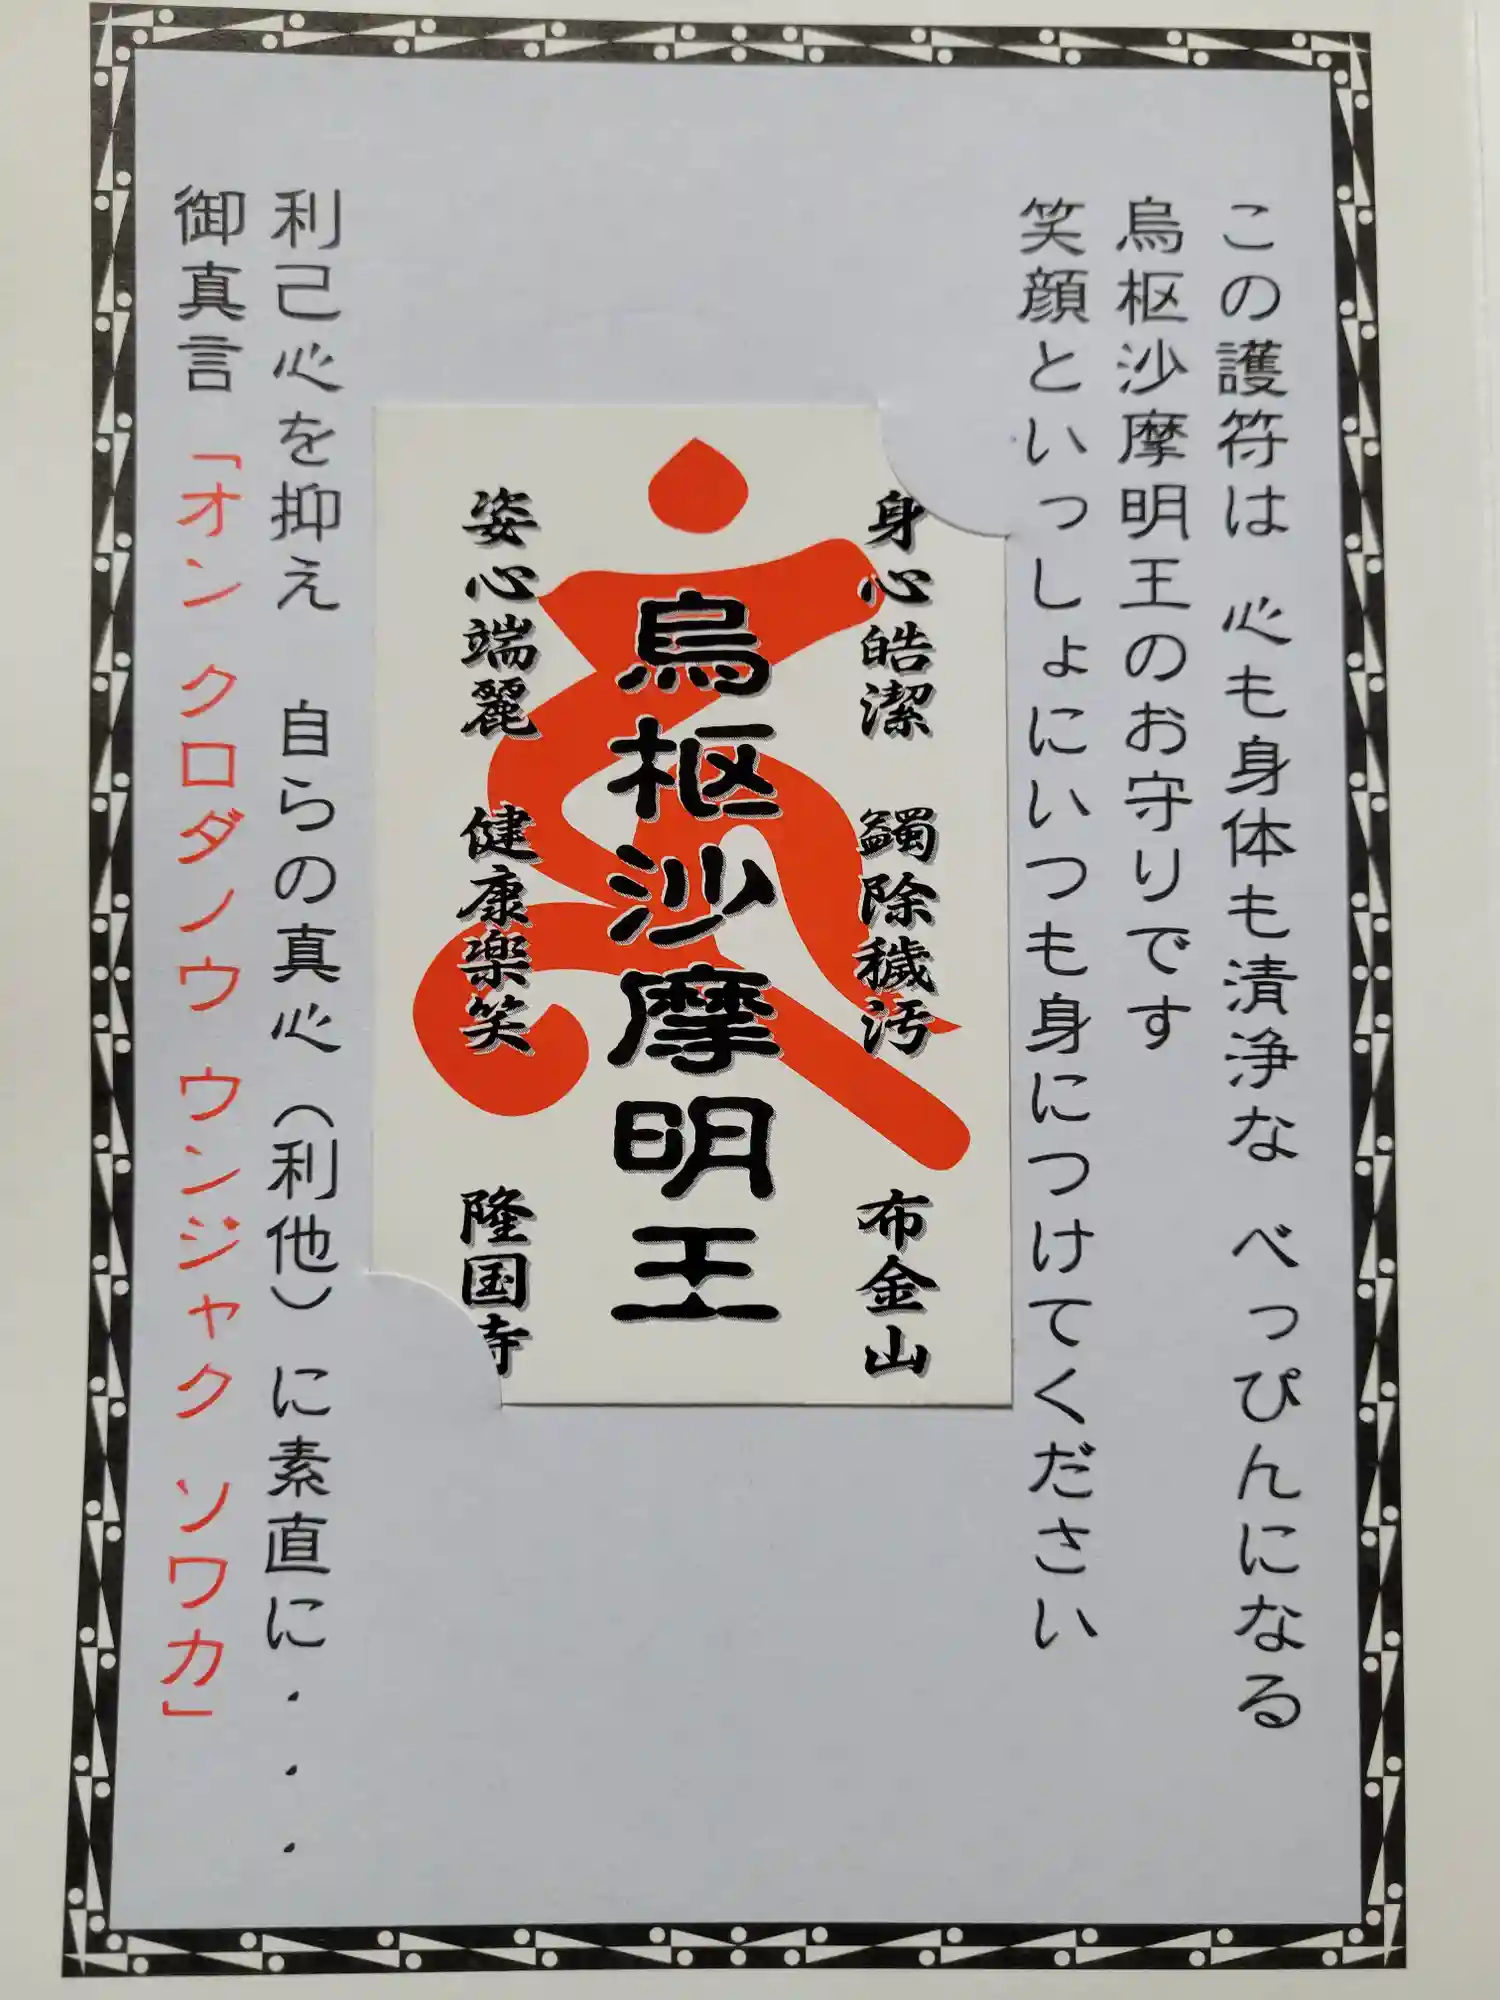 この護符は 心も身体も清浄な べっぴんになる
烏枢沙摩明王のお守りです
笑顔といっしょにいつも身につけてください
身心皓潔 蠲除穢汚 布金山
烏枢沙摩明王
姿心端麗 健康楽笑 隆国寺
利己心を抑え 自らの真心（利他）に素直に・・・
御真言「オン クロダノウ ウンジャク ソワカ」